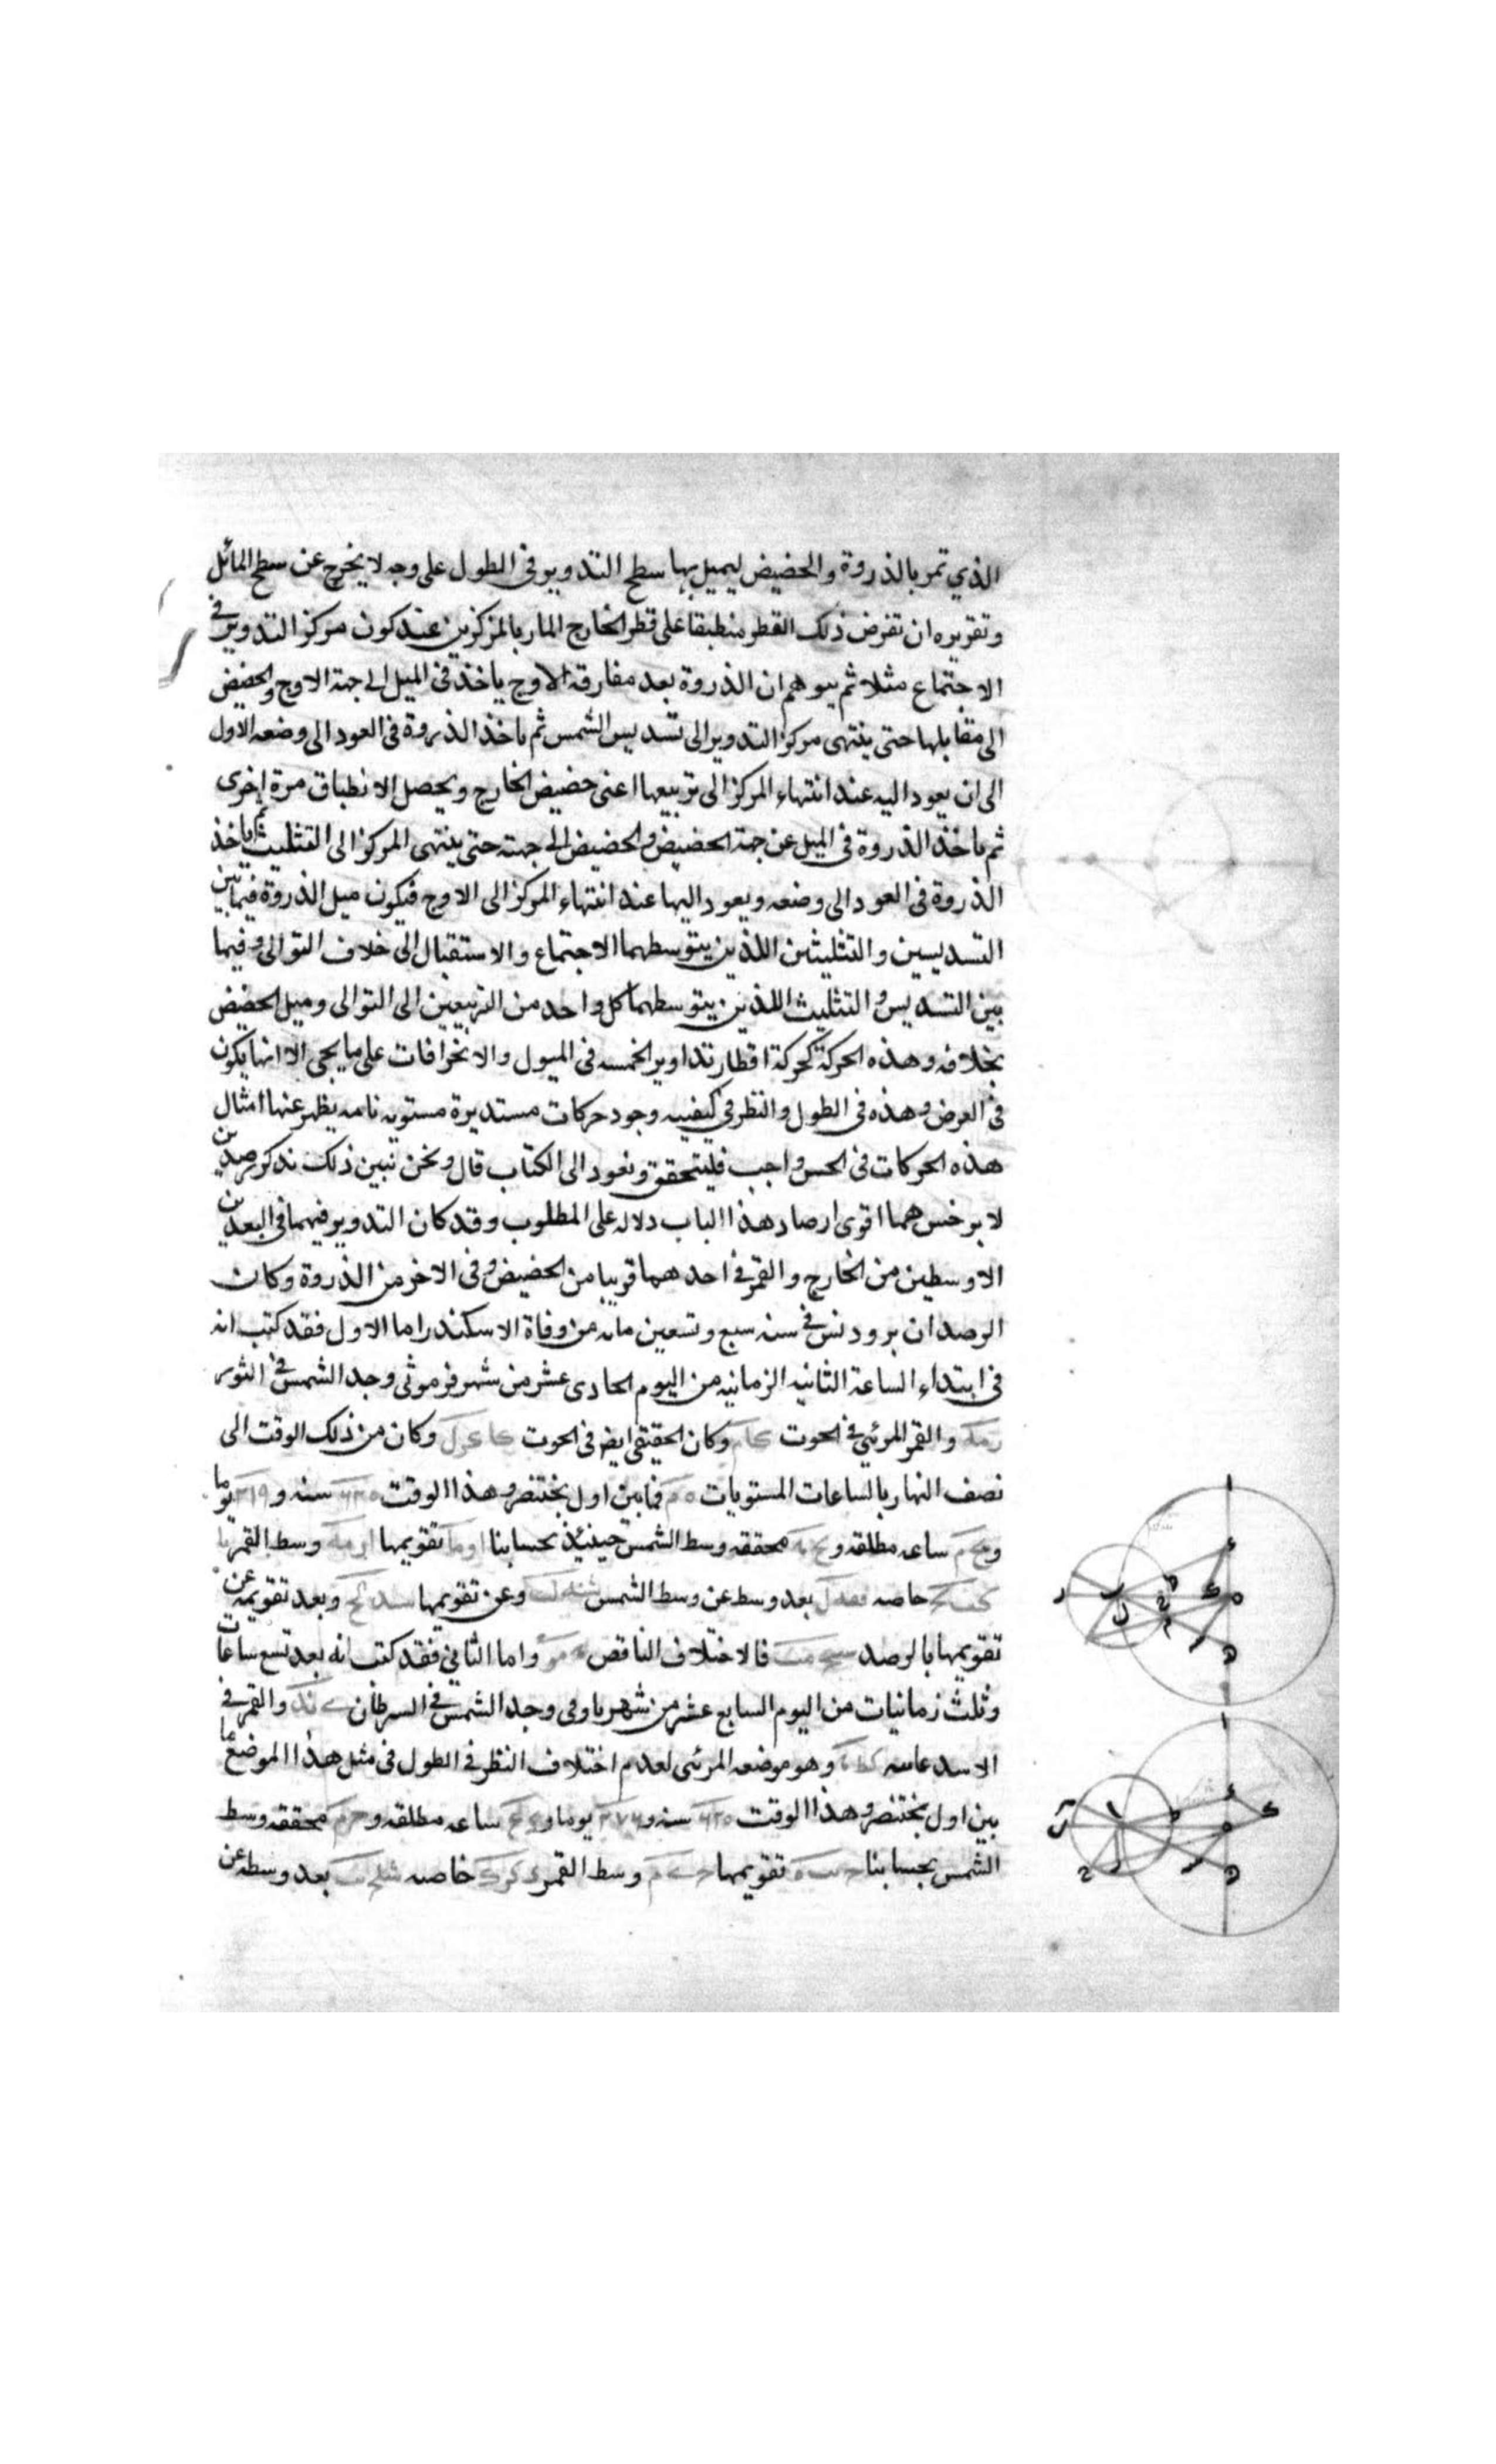 الذي تمر بالذروة والحضيض ليميل بها سطح التدوير فى الطول على وجه لا يخرج عن سطح المائل
وتقريره ان تفرض ذلك القطر منطبقا على قطر الخارج المار بالمركزين عند كون مركز التدوير فى
الاجتماع مثلا ثم يتوهم ان الذروة بعد مفارقة الاوج ياخذ فى الميل الى جهة الاوج والحضيض
الى مقابلها حتى ينتهى مركز التدوير الى تسديس الشمس ثم ياخذ الذروة فى العود الى وضعه الاول
الى ان يعود اليه عند انتهاء المركز الى تربيعها اعنى حضيض الخارج ويحصل الانطباق مرة اخرى
ثم ياخذ الذروة فى الميل عن جهة الحضيض والحضيض الى جهته حتى ينتهى المركز الى التثليث ثم ياخذ
الذروة فى العود الى وضعه ويعود اليها عند انتهاء المركز الى الاوج فيكون ميل الذروة فيما بين
التسديسين والتثليثين اللذين يتوسطهما الاجتماع والاستقبال الى خلاف التوالى وفيما
بين التسديس والتثليث اللذين يتوسطهما كل واحد من التربيعين الى التوالى وميل الحضيض
بخلافه وهذه الحركة كحركة اقطار تداوير الخمسه فى الميول والانحرافات على ما يجى الا انها يكون
فى العرض وهذه فى الطول والنظر فى كيفيه وجود حركات مستديرة مستويه تامه يظهر عنها امثال
هذه الحركات فى الحس واجب فليتحقق ونعود الى الكتاب قال ونحن نبين ذلك بذكر رصدين
لابرخس هما اقوى ارصاد هذا الباب دلاله على المطلوب وقد كان التدوير فيهما فى البعدين
الاوسطين من الخارج والقمر فى احدهما قريبا من الحضيض وفى الاخر من الذروة وكان
الرصدان برودس فى سنه سبع وتسعين مائه من وفاة الاسكندر اما الاول فقد كتب انه
فى ابتداء الساعة الثانيه الزمانيه من اليوم الحادى عشر من شهر فرموثى وجد الشمس فى الثور
والقمر المرئى فى الحوت وكان الحقيقى ايضا فى الحوت وكان من ذلك الوقت الى
نصف النهار بالساعات المستويات ه م فما بين اول بختنصر وهذا الوقت سنه و ٢١٩ يوما
و ساعه مطلقه و محققه وسط الشمس حينئذ بحسابنا تقويمها وسط القمر
خاصه بعد وسط عن وسط الشمس وعن تقويمها وبعد تقويمه عن
تقويمها بالرصد فالاختلاف الناقص واما الثانى فقد كتب انه بعد تسع ساعات
وثلث زمانيات من اليوم السابع عشر من شهر باونى وجد الشمس فى السرطان والقمر فى
الاسد وهو موضعه المرئى لعدم اختلاف النظر فى الطول فى مثل هذا الموضع فما
بين اول بختنصر وهذا الوقت سنه و يوما و ساعه مطلقه و محققه وسط
الشمس بحسابنا تقويمها وسط القمر خاصه بعد وسطه عن